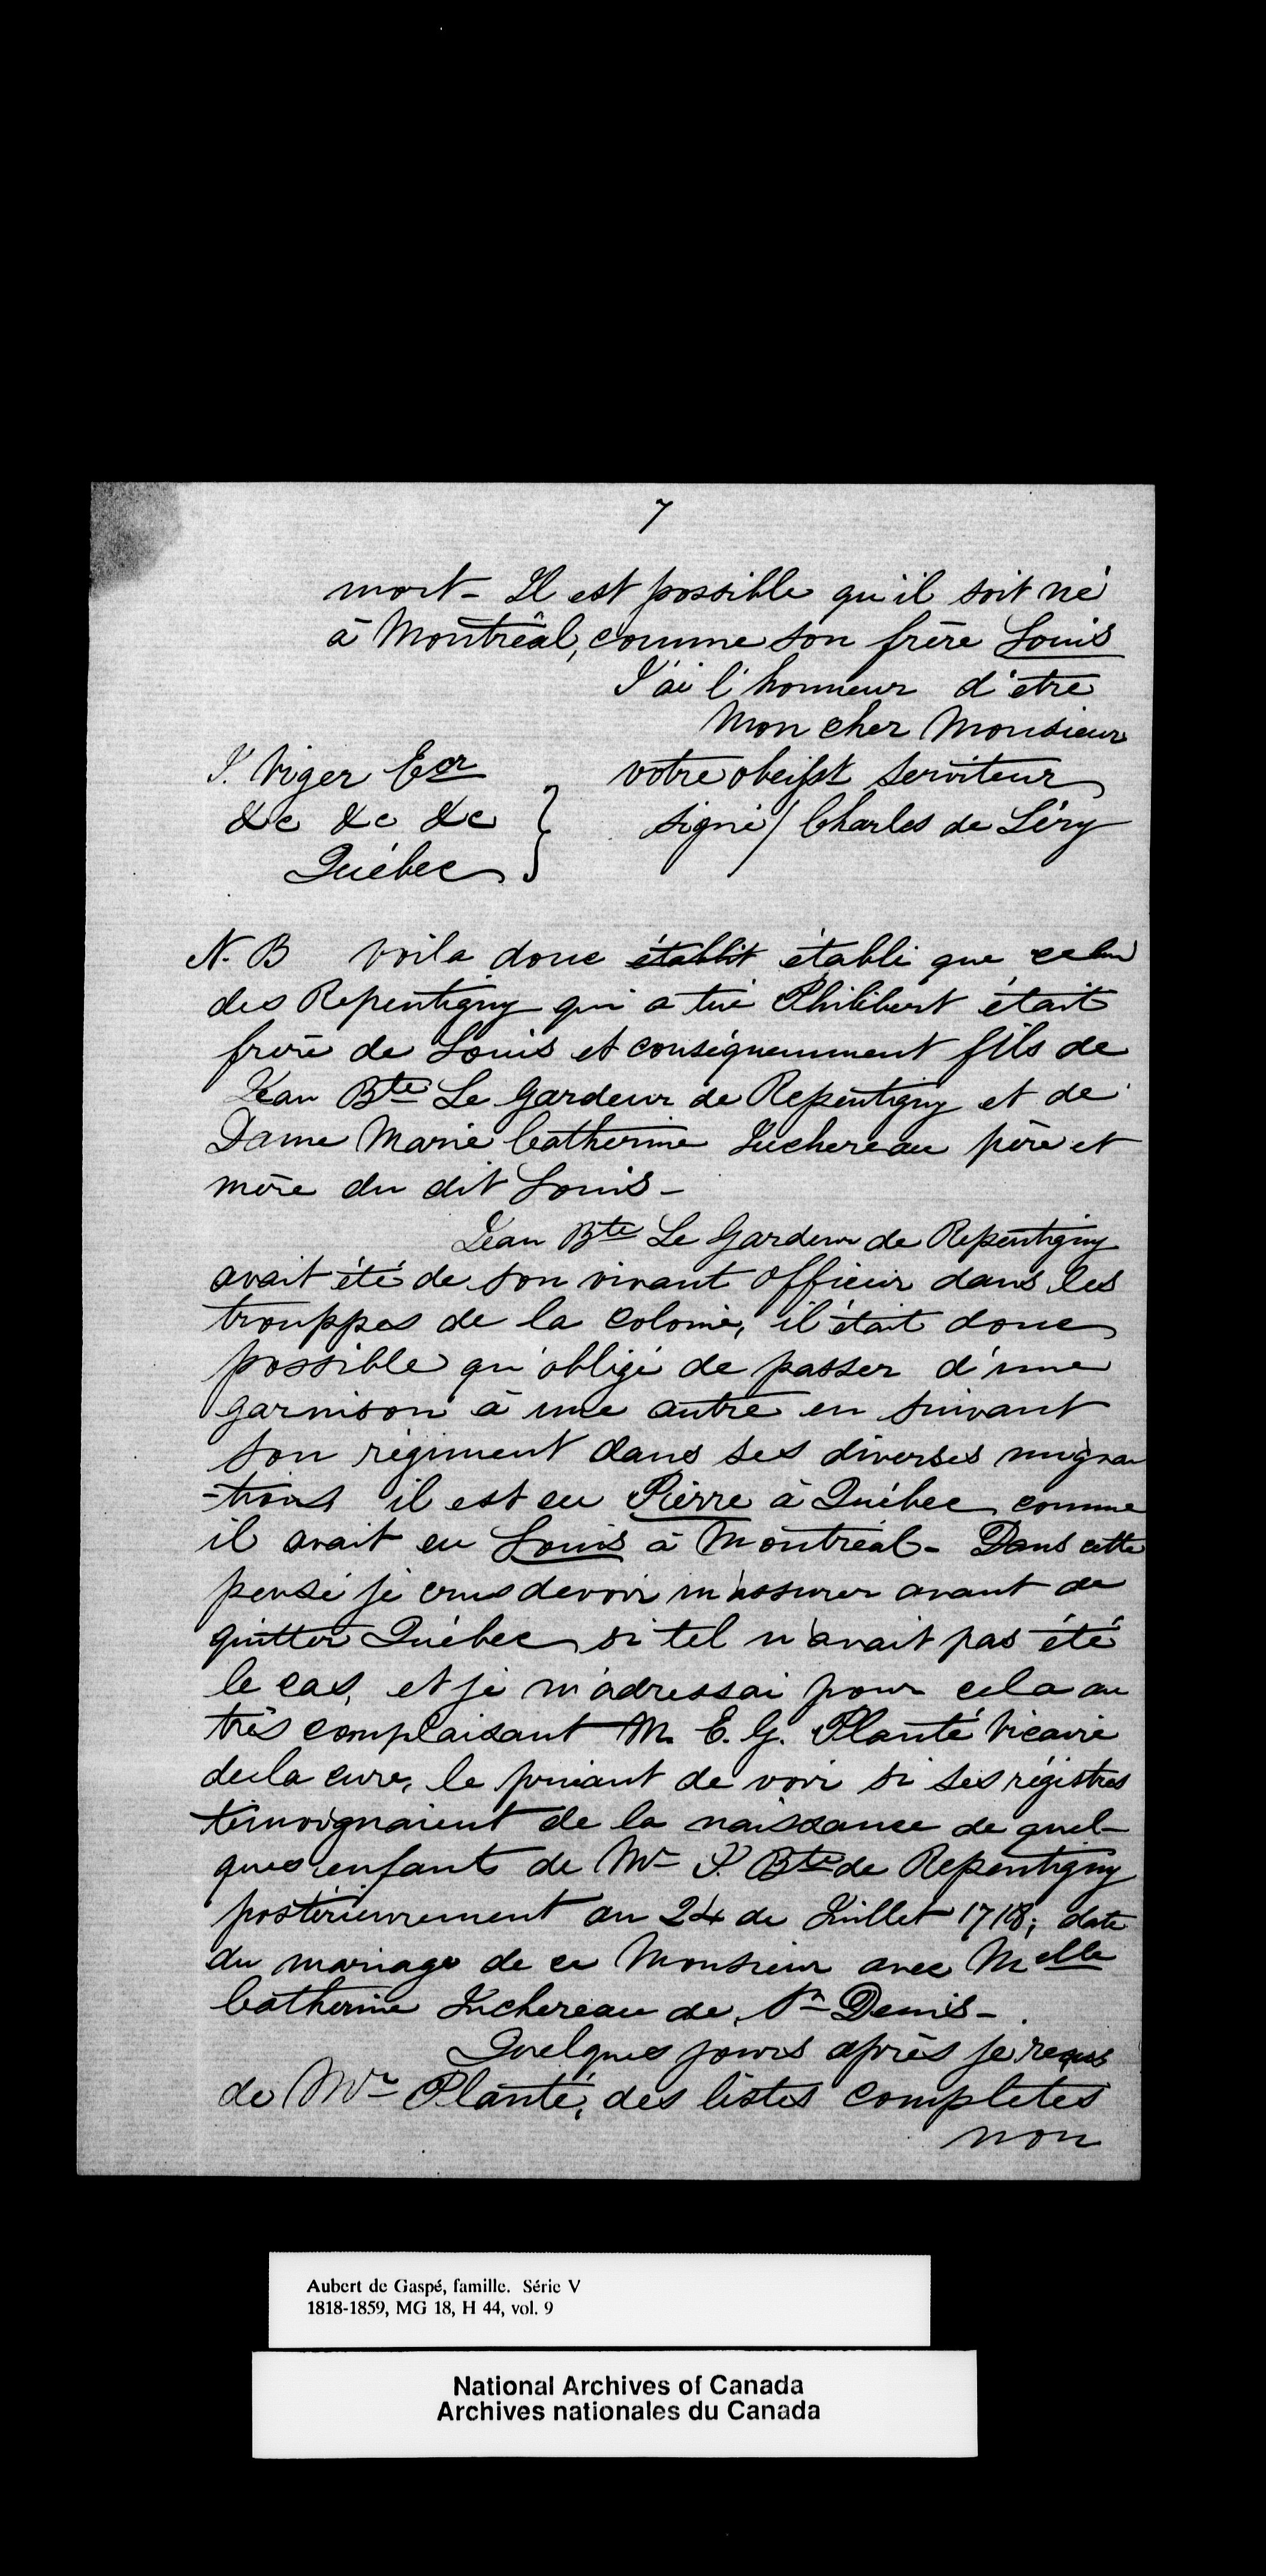 7
mort - Il est possible qu'il soit né
à Montréal, comme son frère Louis
J'ai l'honneur d'etre
Mon cher Monsieur
J. Viger Ecr votre obeisst serviteur
&c &c &c } signé / Charles de Léry
Québec
N. B voila donc établit établi que celui
des Repentigny qui a tué Philibert était
frère de Louis et conséquemment fils de
Jean Bte Le Gardeur de Repentigny et de
Dame Marie Catherine Juchereau père et
mère du dit Louis -
Jean Bte Le Gardeur de Repentigny
avait été de son vivant officier dans les
trouppes de la colonie, il était donc
possible qu'obligé de passer d'une
garnison à une autre en suivant
son régiment dans ses diverses migra
-tions il est eu Pierre à Québec comme
il avait eu Louis à Montréal - Dans cette
pensé je crus devoir m'assurer avant de
quitter Québec si tel n'avait pas été
le cas, et je m'adressai pour cela au
très complaisant M. E. G. Planté vicaire
de la cure, le priant de voir si ses régistres
témoignaient de la naissance de quel-
ques enfants de Mr J. Bte de Repentigny
postérieurement au 24 de Juillet 1718; date
du mariage de ce Monsieur avec Melle
Catherine Juchereau de St Denis -
Quelques jours après je reçus
de Mr Planté, des listes completes
non
Aubert de Gaspé, famille. Série V
1818-1859, MG 18, H 44, vol. 9
National Archives of Canada
Archives nationales du Canada